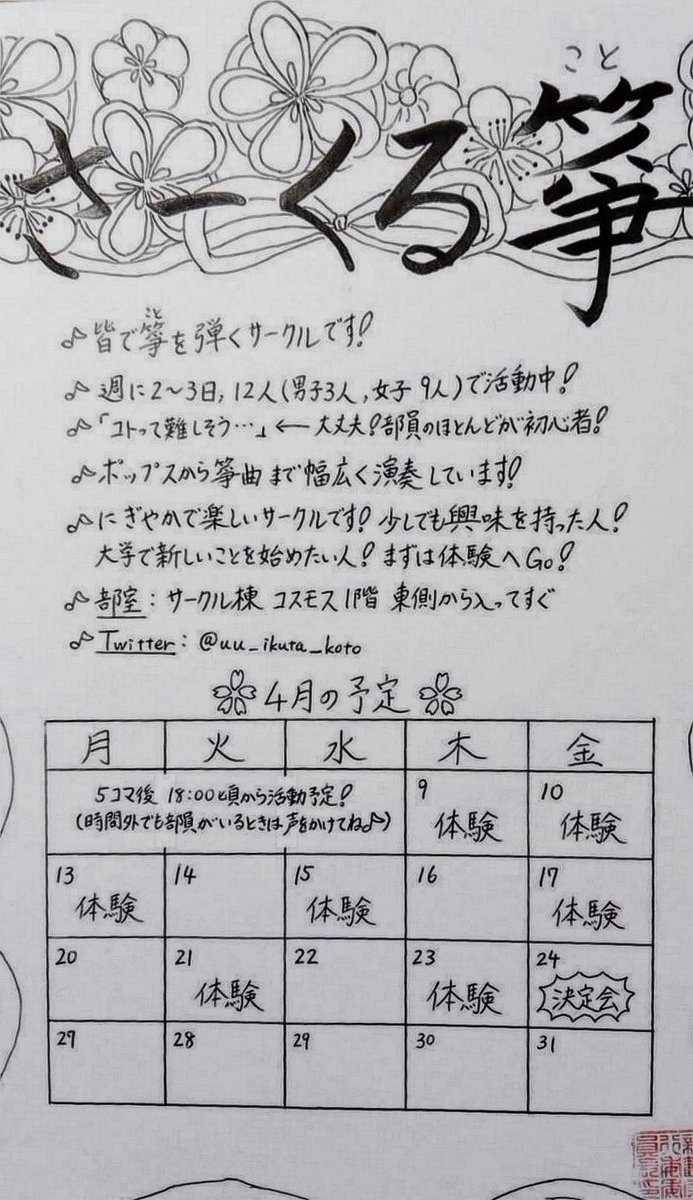 こと
さーくる箏
♪皆で箏を弾くサークルです!
こと
♪週に2～3日, 12人(男子3人, 女子 9人)で活動中!
♪「コトって難しそう…」← 大丈夫!部員のほとんどが初心者!
♪ポップスから箏曲まで幅広く演奏しています!
♪にぎやかで楽しいサークルです! 少しでも興味を持った人!
大学で新しいことを始めたい人! まずは体験へGo!
♪部室: サークル棟 コスモス1階 東側から入ってすぐ
♪Twitter: @uu_ikuta_koto
4月の予定
月 火 水 木 金
5コマ後 18:00頃から活動予定!
(時間外でも部員がいるときは声をかけてね♪)
9 体験
10 体験
13 体験
14
15 体験
16
17 体験
20
21 体験
22
23 体験
24 決定会
27
28
29
30
31